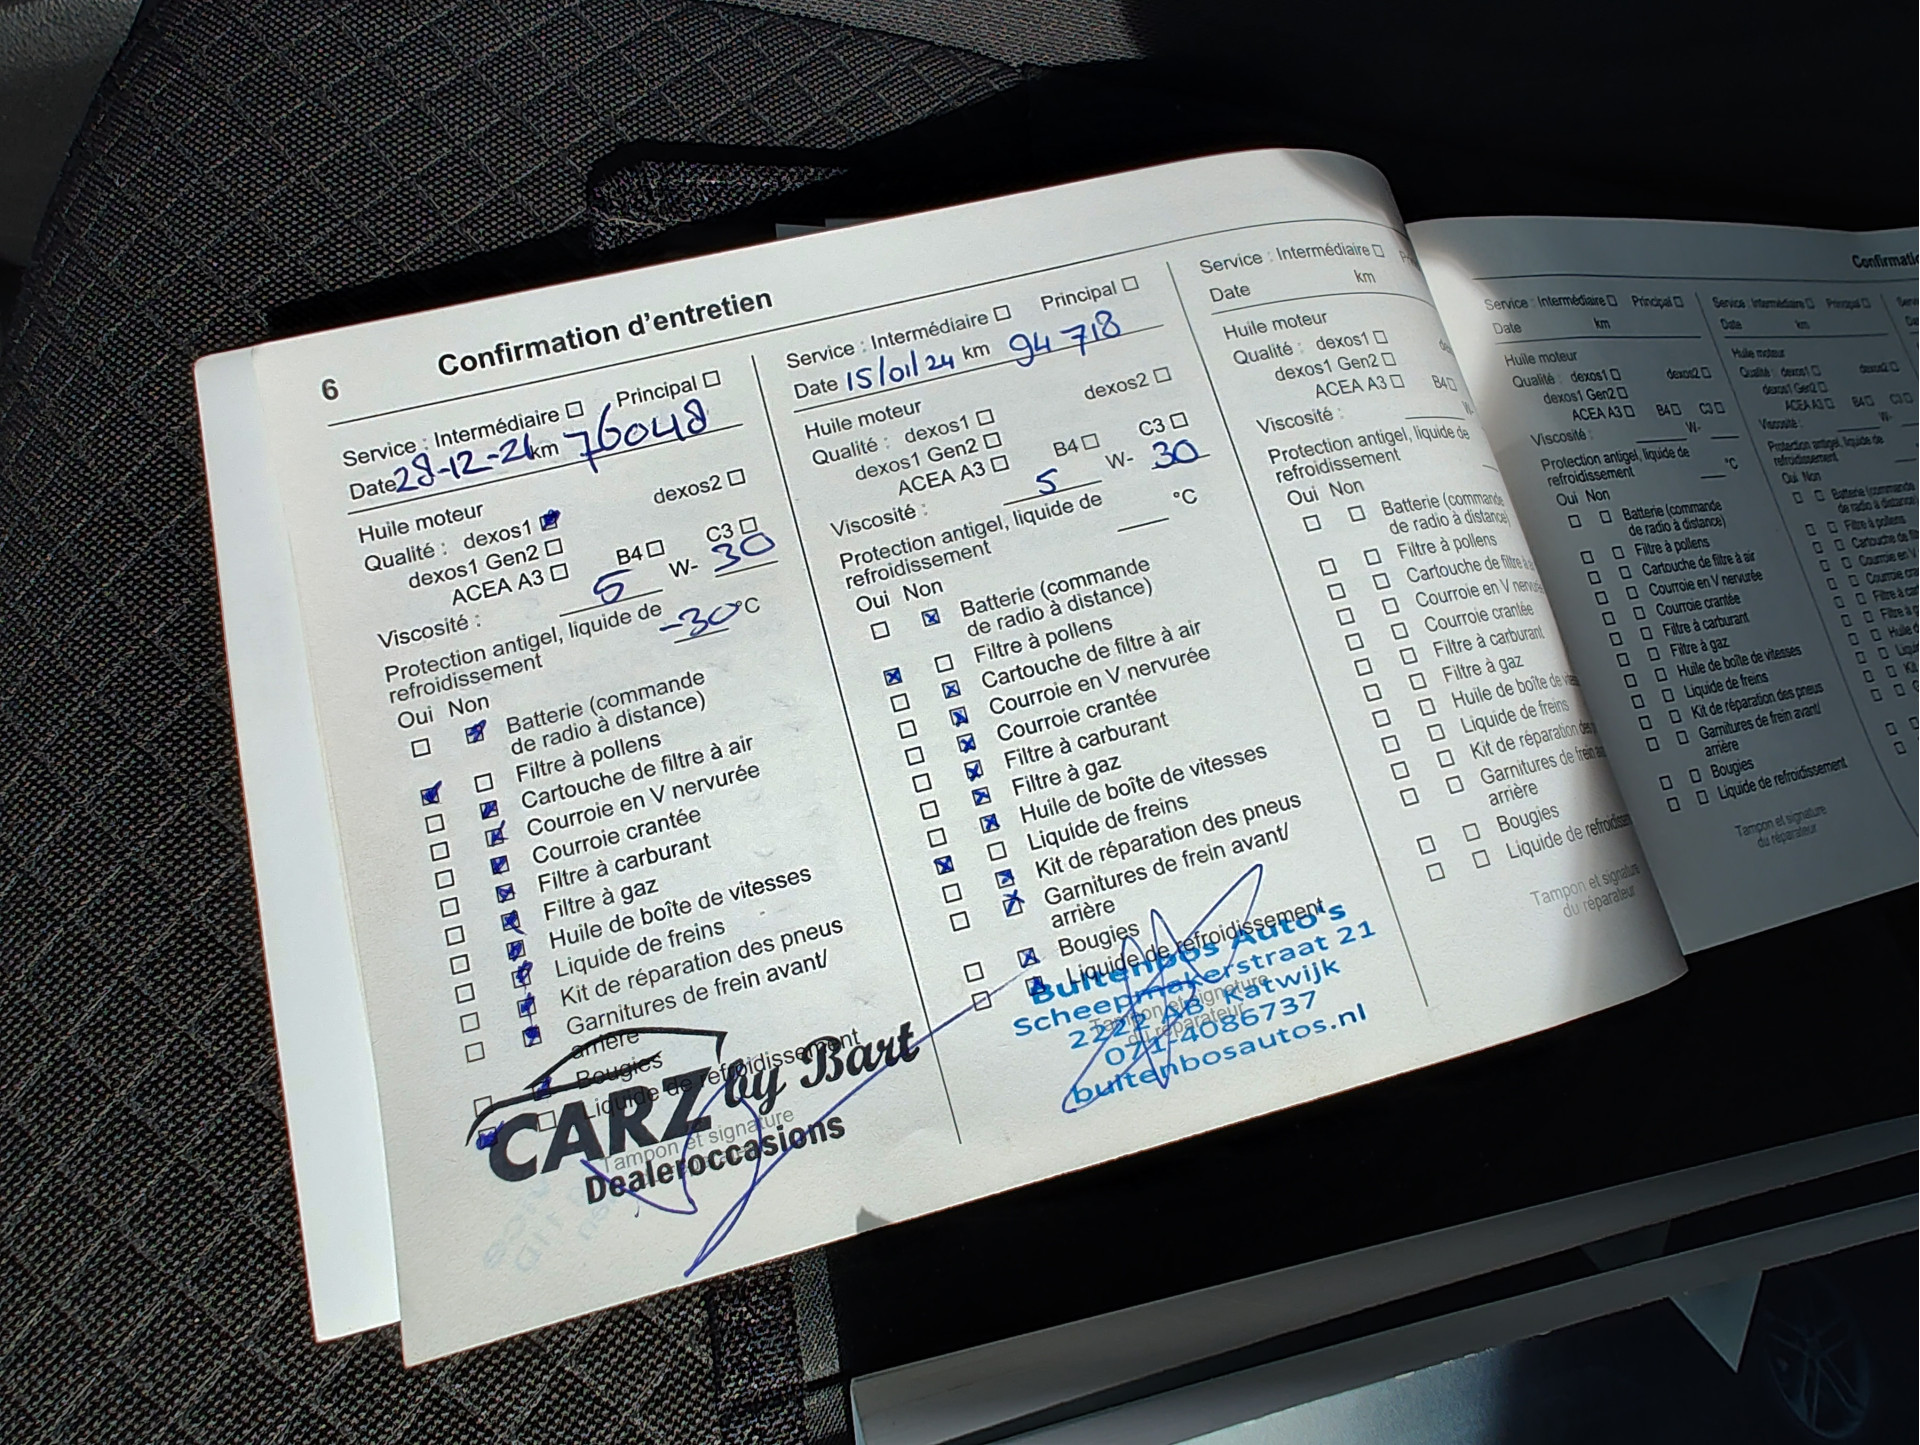 6
Confirmation d'entretien
Service : Intermédiaire Principal
Date 28-12-21 km 76048
Huile moteur
Qualité : dexos1 dexos2
dexos1 Gen2
ACEA A3 B4 C3
Viscosité : 5 W- 30
Protection antigel, liquide de
refroidissement -30°C
Oui Non
Batterie (commande
de radio à distance)
Filtre à pollens
Cartouche de filtre à air
Courroie en V nervurée
Courroie crantée
Filtre à carburant
Filtre à gaz
Huile de boîte de vitesses
Liquide de freins
Kit de réparation des pneus
Garnitures de frein avant/
arrière
Bougies
Liquide de refroidissement
Tampon et signature
CARZ by Bart
Dealeroccasions
Service : Intermédiaire Principal
Date 15/01/24 km 94 718
Huile moteur
Qualité : dexos1 dexos2
dexos1 Gen2
ACEA A3 B4 C3
Viscosité : 5 W- 30
Protection antigel, liquide de
refroidissement °C
Oui Non
Batterie (commande
de radio à distance)
Filtre à pollens
Cartouche de filtre à air
Courroie en V nervurée
Courroie crantée
Filtre à carburant
Filtre à gaz
Huile de boîte de vitesses
Liquide de freins
Kit de réparation des pneus
Garnitures de frein avant/
arrière
Bougies
Liquide de refroidissement
Tampon et signature
du réparateur
Buitenbos Auto's
Scheepmakerstraat 21
2222 AB Katwijk
071-4086737
buitenbosautos.nl
Service : Intermédiaire
Date km
Huile moteur
Qualité : dexos1
dexos1 Gen2
ACEA A3 B4
Viscosité :
Protection antigel, liquide de
refroidissement
Oui Non
Batterie (commande
de radio à distance)
Filtre à pollens
Cartouche de filtre à
Courroie en V
Courroie crantée
Filtre à carburant
Filtre à gaz
Huile de boîte de
Liquide de freins
Kit de réparation
Garnitures de frein
arrière
Bougies
Liquide de
Tampon et signature
du réparateur
Service : Intermédiaire Principal
Date km
Huile moteur
Qualité : dexos1 dexos2
dexos1 Gen2
ACEA A3 B4 C3
Viscosité : W-
Protection antigel, liquide de
refroidissement °C
Oui Non
Batterie (commande
de radio à distance)
Filtre à pollens
Cartouche de filtre à air
Courroie en V nervurée
Courroie crantée
Filtre à carburant
Filtre à gaz
Huile de boîte de vitesses
Liquide de freins
Kit de réparation des pneus
Garnitures de frein avant/
arrière
Bougies
Liquide de refroidissement
Tampon et signature
du réparateur
Service : Intermédiaire Principal
Date km
Huile moteur
Qualité : dexos1 dexos2
dexos1 Gen2
ACEA A3 B4 C3
Viscosité : W-
Protection antigel, liquide de
refroidissement
Oui Non
Batterie (commande
de radio à distance)
Filtre à pollens